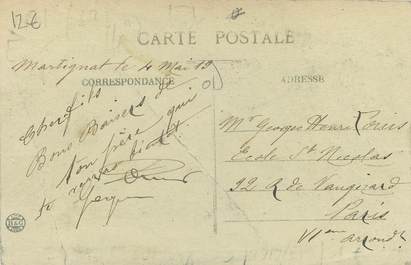 12 €
CARTE POSTALE
Martignat le 4 Mai 19
CORRESPONDANCE
ADRESSE
Cher fils
Bons Baisers de
ton père qui
te reverra bientôt
Mr Georges Henri
Ecole St Nicolas
92 R de Vaugirard
Paris
VI em arrondt
B&G